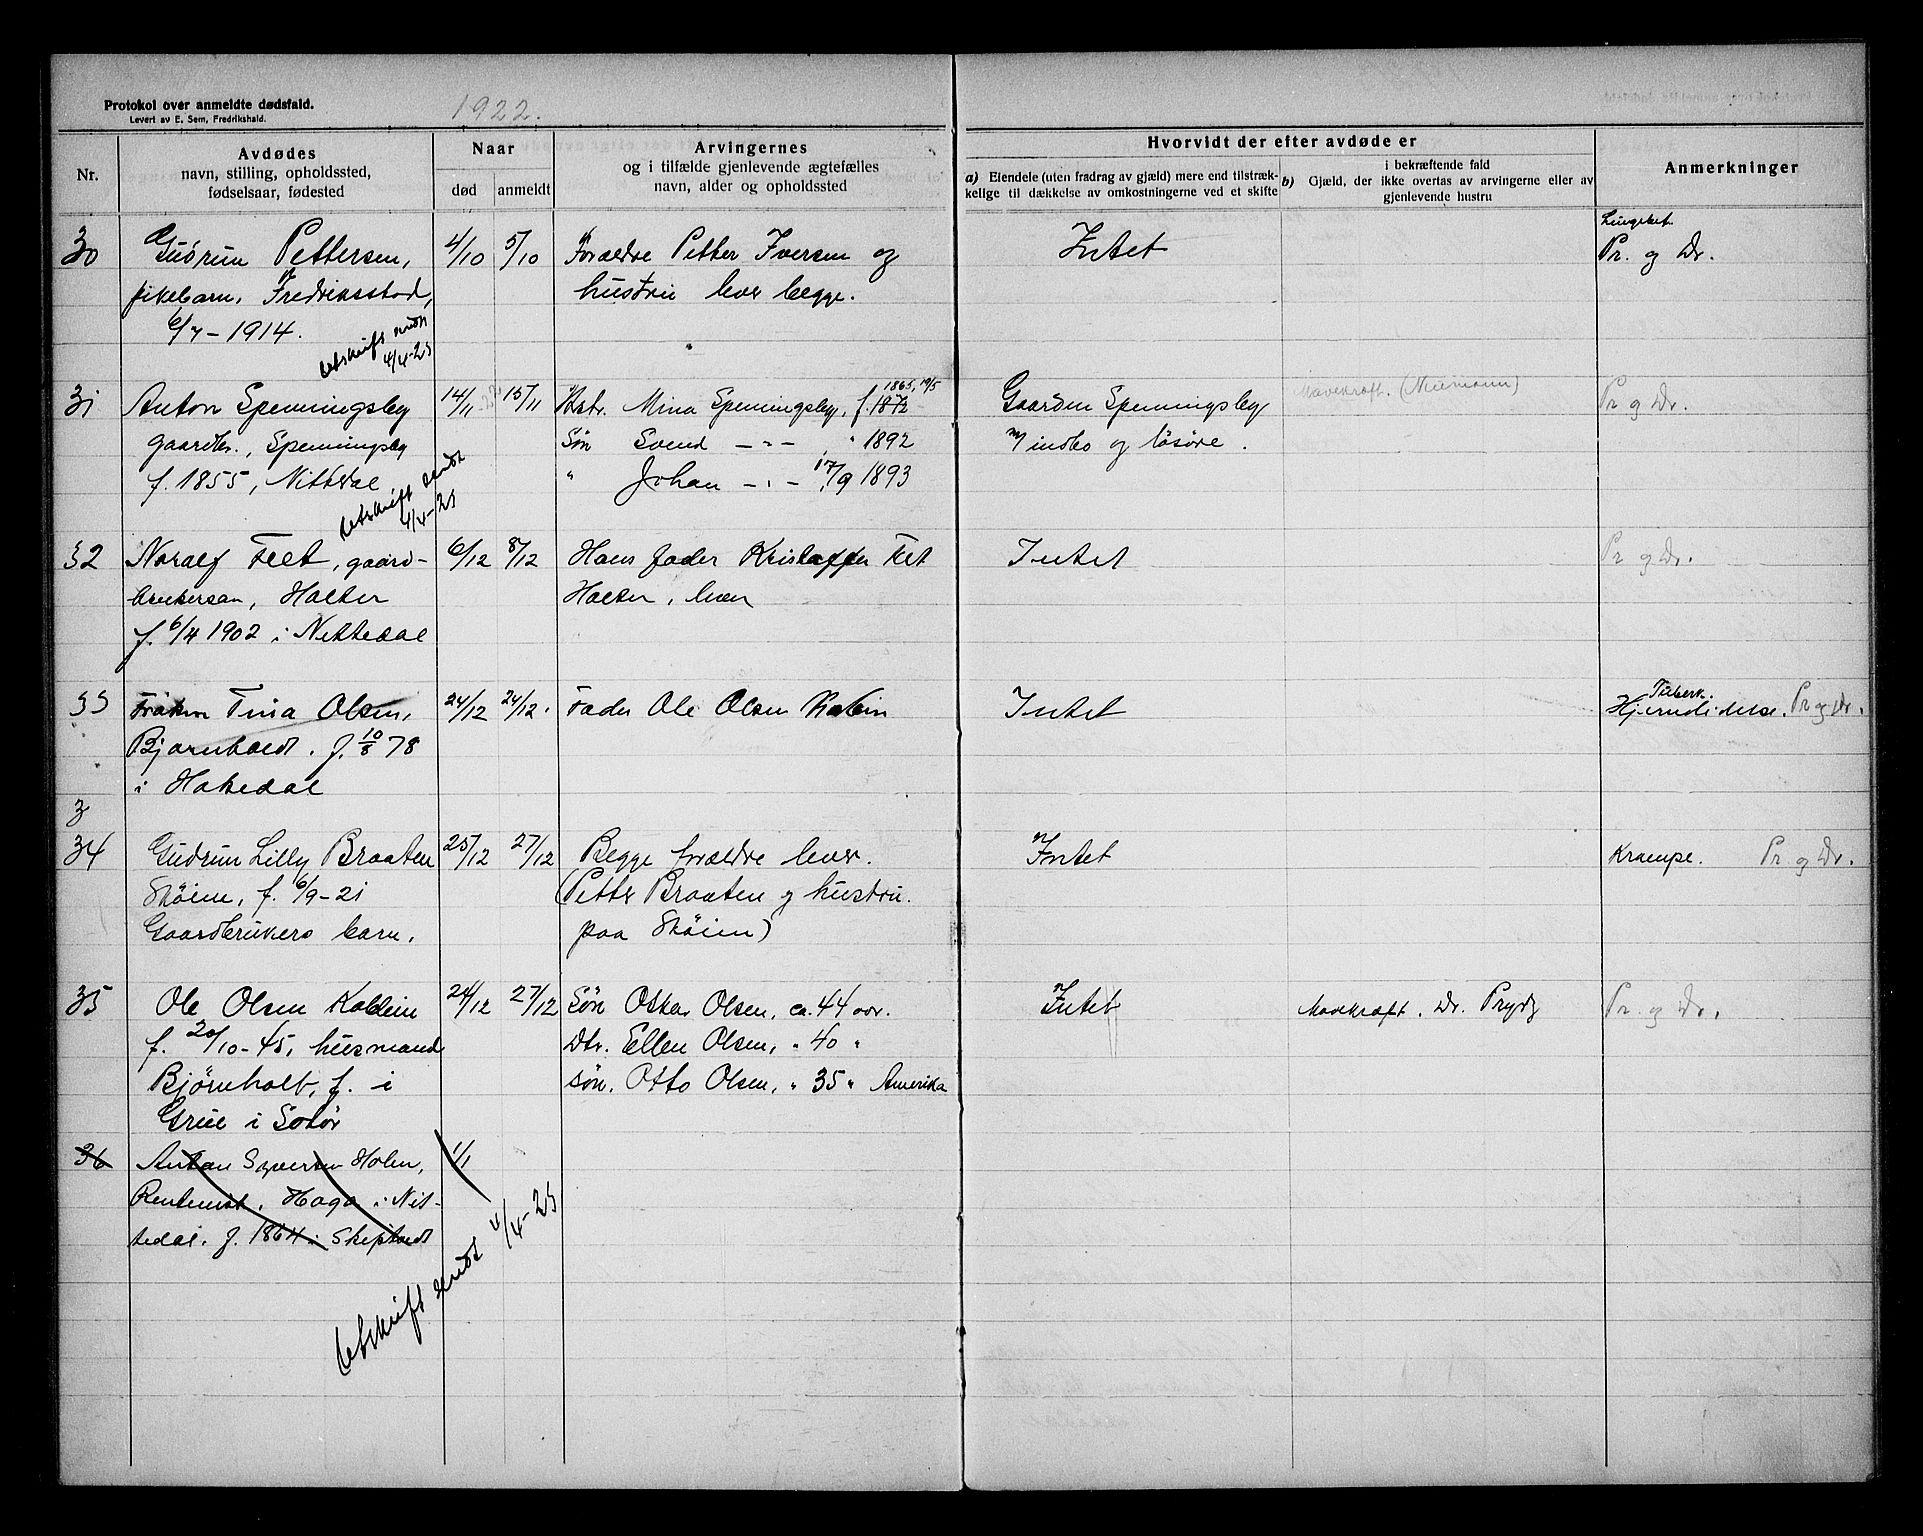 Protokol over anmeldte dødsfald.
Levert av E. Sem, Fredrikshald.
1922.
Nr.
Avdødes
navn, stilling, opholdssted,
fødselsaar, fødested
Naar
død
anmeldt
Arvingernes
og i tilfælde gjenlevende ægtefælles
navn, alder og opholdssted
Hvorvidt der efter avdøde er
a) Eiendele (uten fradrag av gjæld) mere end tilstræk-
kelige til dækkelse av omkostningerne ved et skifte
b)
i bekræftende fald
Gjæld, der ikke overtas av arvingerne eller av
gjenlevende hustru
Anmerkninger
30 Gudrun Pettersen, 4/10 5/10 Forældre Petter Iversen og Intet
Pr. og Dr.
pikebarn, Fredriksstad, hustru lever begge.
6/7 - 1914.
Utskrift sendt
4/4-23
31 Anton Spenningsby 14/11 15/11 Hstr. Mina Spenningsby, f. 1872 Gaarden Spenningsby Mavekræft. (Neumann) Pr og Dr.
1865, 19/5
gaardbr., Spenningsby Søn Svend - " - " 1892 m/ indbo og løsøre.
f. 1855, Nittedal " Johan - " - 17/9 1893
Utskrift sendt
4/4-23
32 Noralf Feet, gaard- 6/12 8/12 Hans fader Kristoffer Feet Intet Pr og Dr.
brukersøn, Holter Holter, lever
f. 6/4 1902 i Nittedal
33 Frøken Tina Olsen, 24/12 24/12. Fader Ole Olsen Intet
Tuberk.
Hjernelidelse. Pr og Dr.
Bjørnholdt. f. 10/8 78
i Hakedal
3
34 Gudrun Lilly Braaten 25/12 27/12 Begge forældre lever. Intet Krampe. Pr og Dr.
Skøien, f. 6/9-21 (Petter Braaten og hustru.
Gaardbrukers barn. paa Skøien)
35 Ole Olsen Kolbein 24/12 27/12 Søn Oskar Olsen, ca. 44 aar. Intet Mavekræft. Dr. Prydz Pr. og Dr.
f. 20/10-45, husmand Dtr. Ellen Olsen, " 40 "
Bjørnholt, f. i søn. Otto Olsen, " 35 " Amerika
Grue i Solør
36 Anton Syversen Holm, 1/1
Rentenist, Haga i Nit-
tedal. f. 1864 i Skiptvedt
Utskrift sendt 4/4-23